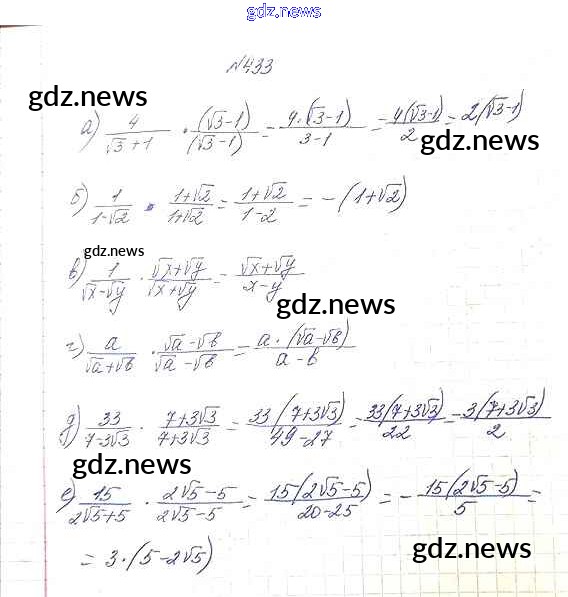 gdz.news
№433
gdz.news
а) 4/(√3+1) · (√3-1)/(√3-1) = 4·(√3-1)/(3-1) = 4(√3-1)/2 = 2(√3-1)
gdz.news
б) 1/(1-√2) · (1+√2)/(1+√2) = (1+√2)/(1-2) = -(1+√2)
gdz.news
в) 1/(√x-√y) · (√x+√y)/(√x+√y) = (√x+√y)/(x-y)
gdz.news
г) a/(√a+√b) · (√a-√b)/(√a-√b) = a·(√a-√b)/(a-b)
д) 33/(7-3√3) · (7+3√3)/(7+3√3) = 33(7+3√3)/(49-27) = 33(7+3√3)/22 = 3(7+3√3)/2
gdz.news
е) 15/(2√5+5) · (2√5-5)/(2√5-5) = 15(2√5-5)/(20-25) = -15(2√5-5)/5 =
= 3·(5-2√5)
gdz.news